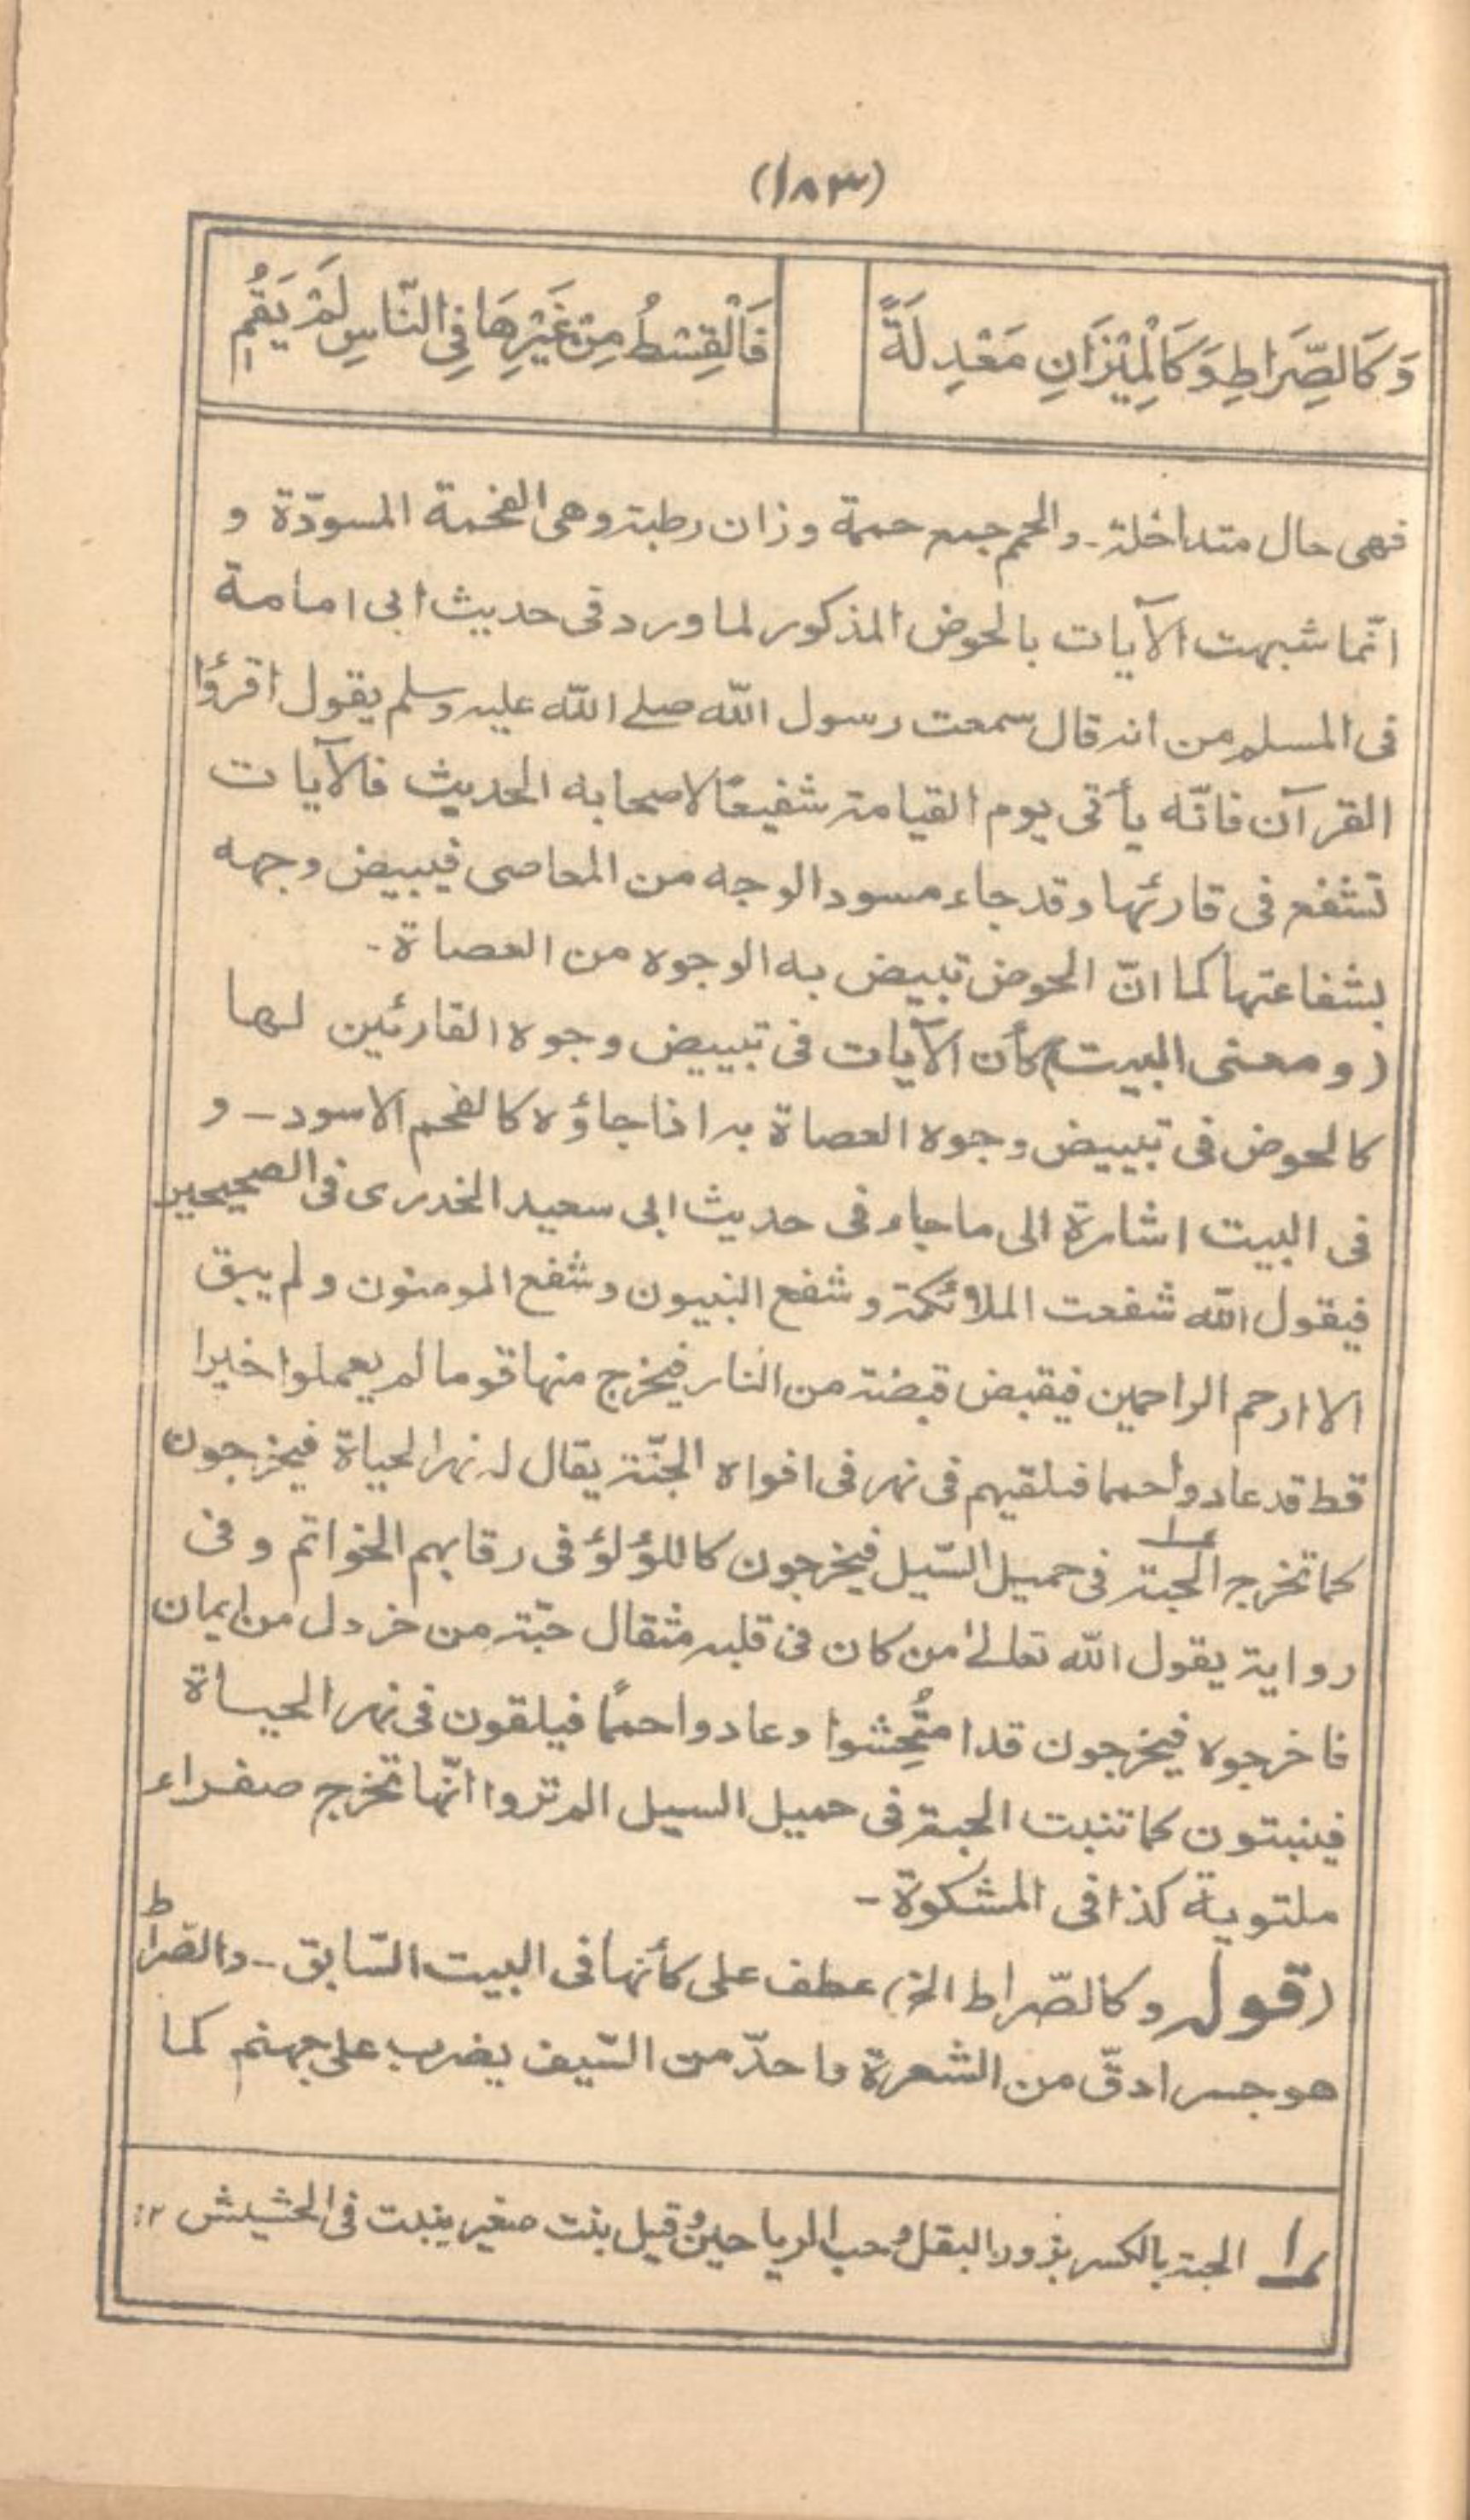 (١٨٣)
وَكَالصِّرَاطِ وَكَالْمِيْزَانِ مَعْدِلَةً
فَالْقِسْطُ مِنْ غَيْرِهَا فِي النَّاسِ لَمْ يَقُمِ
فهى حال متداخلة - والحمم جمع حممة وزان رطبة وهى الفحمة المسودّة و
انّما شبهت الآيات بالحوض المذكور لما ورد فى حديث ابى امامة
فى المسلم من انه قال سمعت رسول الله صلے الله عليه وسلم يقول اقرؤا
القرآن فانّه يأتى يوم القيامة شفيعًا لاصحابه الحديث فالآيات
تشفع فى قارئها وقد جاء مسود الوجه من المعاصى فيبيض وجهه
بشفاعتها كما انّ الحوض تبيض به الوجوه من العصاة -
(ومعنى البيت) كأن الآيات فى تبييض وجوه القارئين لها
كالحوض فى تبييض وجوه العصاة به اذا جاؤه كالفحم الاسود - و
فى البيت اشارة الى ما جاء فى حديث ابى سعيد الخدرى فى الصحيحين
فيقول الله شفعت الملائكة وشفع النبيون وشفع المومنون ولم يبق
الا ارحم الراحمين فيقبض قبضة من النار فيخرج منها قوما لم يعملوا خيرا
قط قد عادوا حمما فيلقيهم فى نهر فى افواه الجنّة يقال له نهر الحياة فيخرجون
كما تخرج الحبة ١ فى حميل السّيل فيخرجون كاللؤلؤ فى رقابهم الخواتم وفى
رواية يقول الله تعالےٰ من كان فى قلبه مثقال حبّة من خردل من ايمان
فاخرجوه فيخرجون قد امتُحِشوا وعادوا حممًا فيلقون فى نهر الحياة
فينبتون كما تنبت الحبة فى حميل السيل الم تروا انّها تخرج صفراء
ملتوية كذا فى المشكوة -
(قوله وكالصّراط الخ) عطف على كأنها فى البيت السّابق - والصّراط
هو جسر ادقّ من الشعرة واحدّ من السّيف يضرب على جهنم كما
١ الحبة بالكسر بزور البقل وحب الرياحين وقيل بنت صغير ينبت فى الحشيش ١٢: